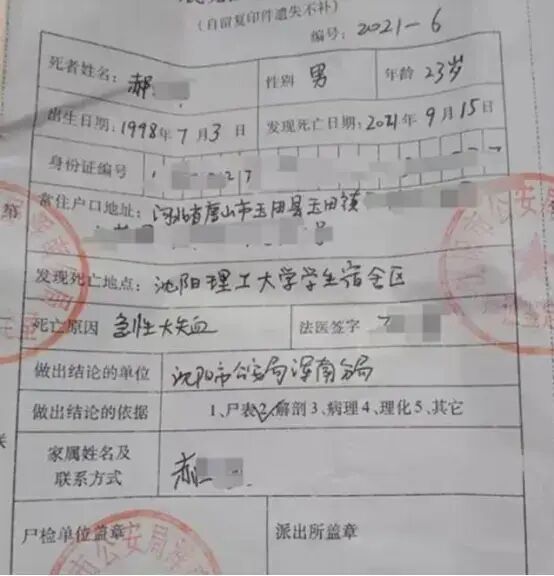 (自留复印件遗失不补)
编号: 2021-6
死者姓名: 郝 性别 男 年龄 23岁
出生日期: 1998年7月3日 发现死亡日期: 2021年9月15日
身份证编号
常住户口地址: 河北省唐山市玉田县玉田镇
号
发现死亡地点: 沈阳理工大学学生宿舍区
死亡原因 急性大失血 法医签字
做出结论的单位 沈阳市公安局浑南分局
做出结论的依据 1、尸表2、解剖3、病理4、理化5、其它
家属姓名及
联系方式 郝
尸检单位盖章 派出所盖章
市公安局浑